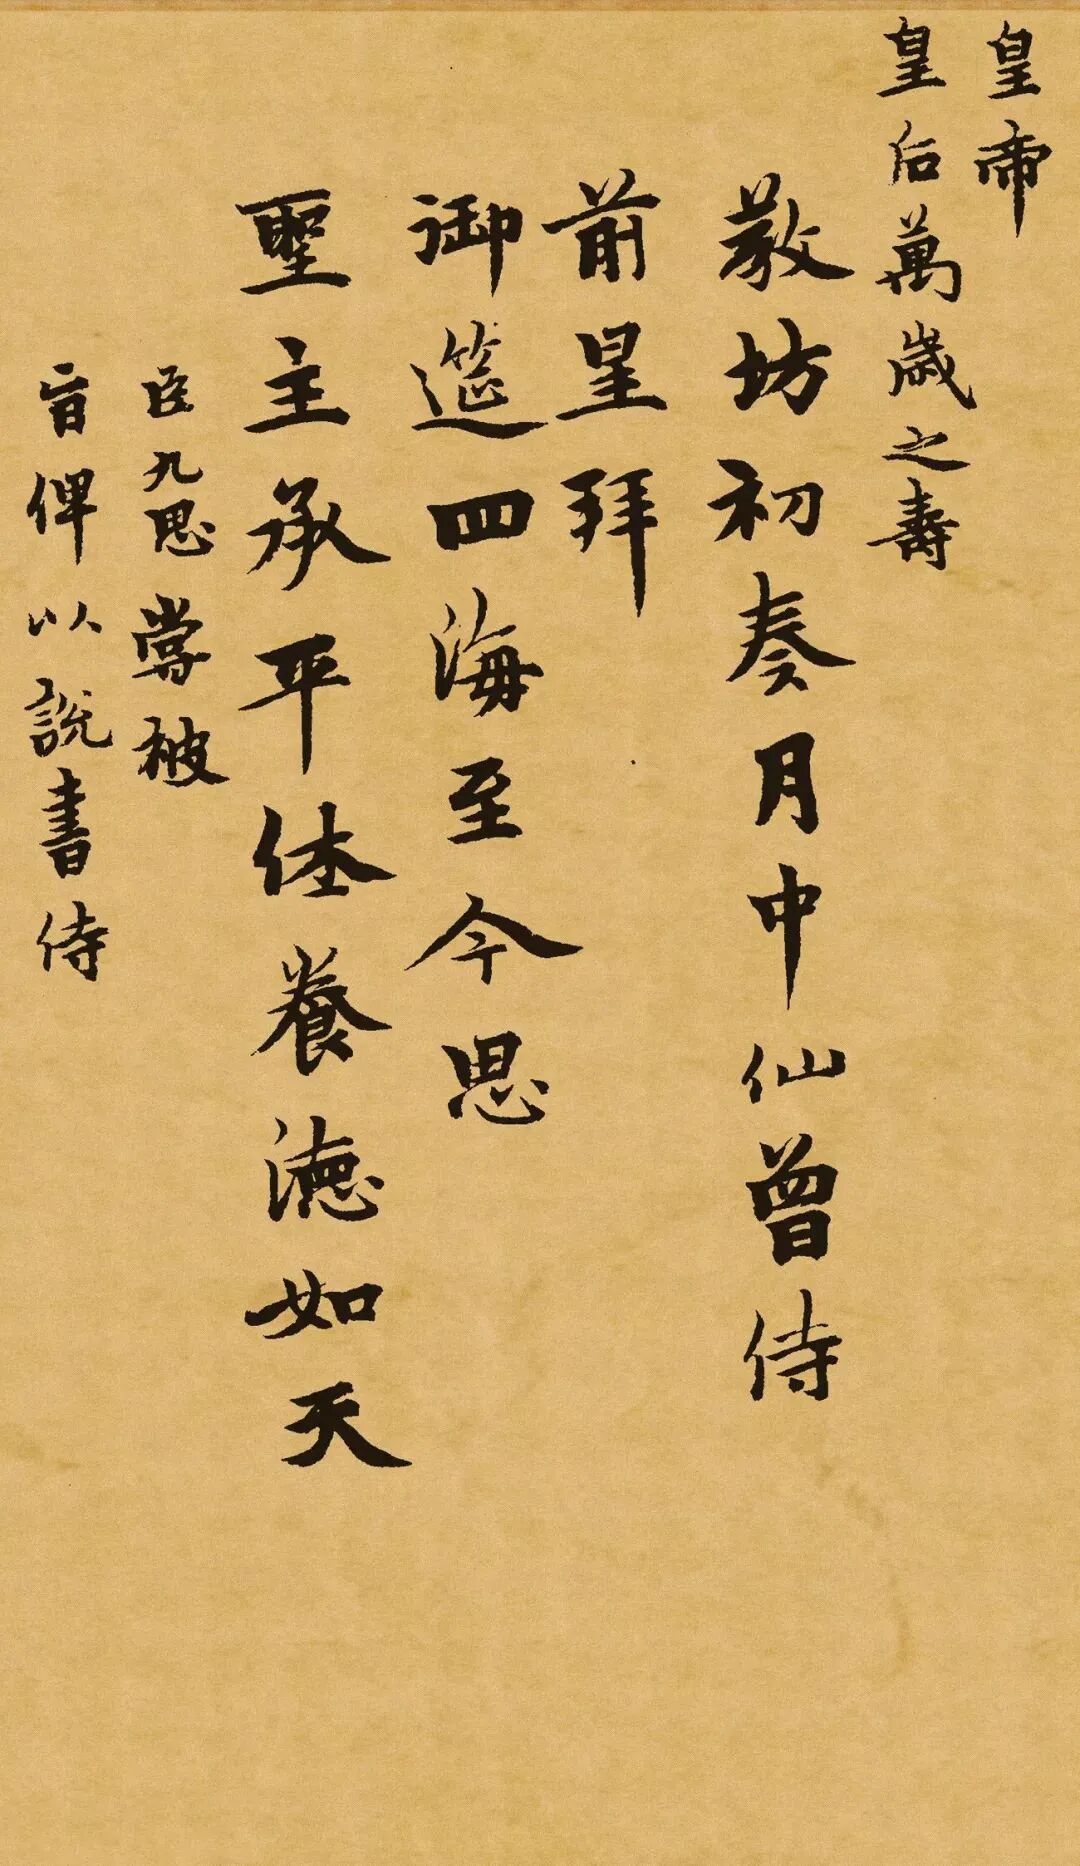 皇帝
皇后萬歲之壽
教坊初奏月中仙曾侍
前星拜
御筵四海至今思
聖主承平休養德如天
臣九思嘗被
旨俾以說書侍